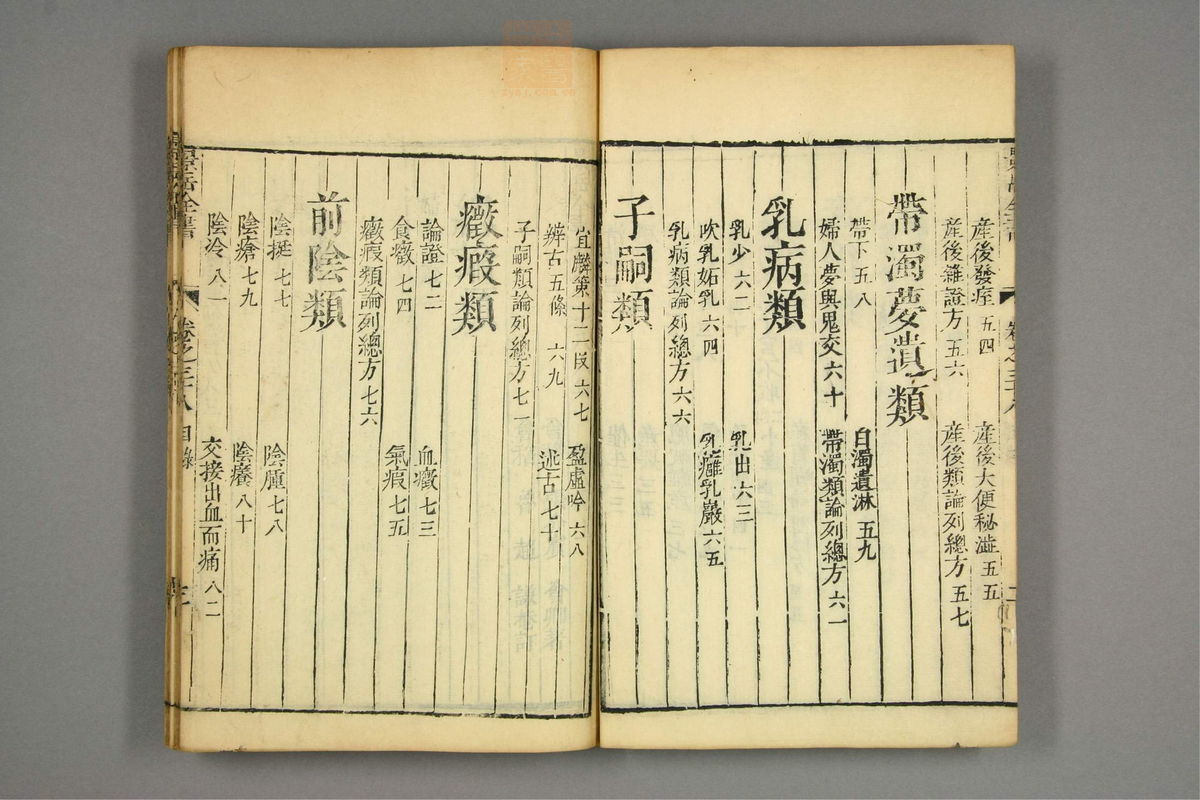 產後發痓 五四 產後大便秘澁 五五
產後雜證方 五六 產後類論列總方 五七
帶濁夢遺類
帶下 五八 白濁遺淋 五九
婦人夢與鬼交 六十 帶濁類論列總方 六一
乳病類
乳少 六二 乳出 六三
吹乳妬乳 六四 乳癰乳巖 六五
乳病類論列總方 六六
子嗣類
宜麟第十二段 六七 盈虛吟 六八
辨古五條 六九 述古 七十
子嗣類論列總方 七一
癥瘕類
論證 七二 血癥 七三
食癥 七四 氣瘕 七五
癥瘕類論列總方 七六
前陰類
陰挺 七七 陰腫 七八
陰瘡 七九 陰癢 八十
陰冷 八一 交接出血而痛 八二
景岳全書 卷之三十八 目錄 三